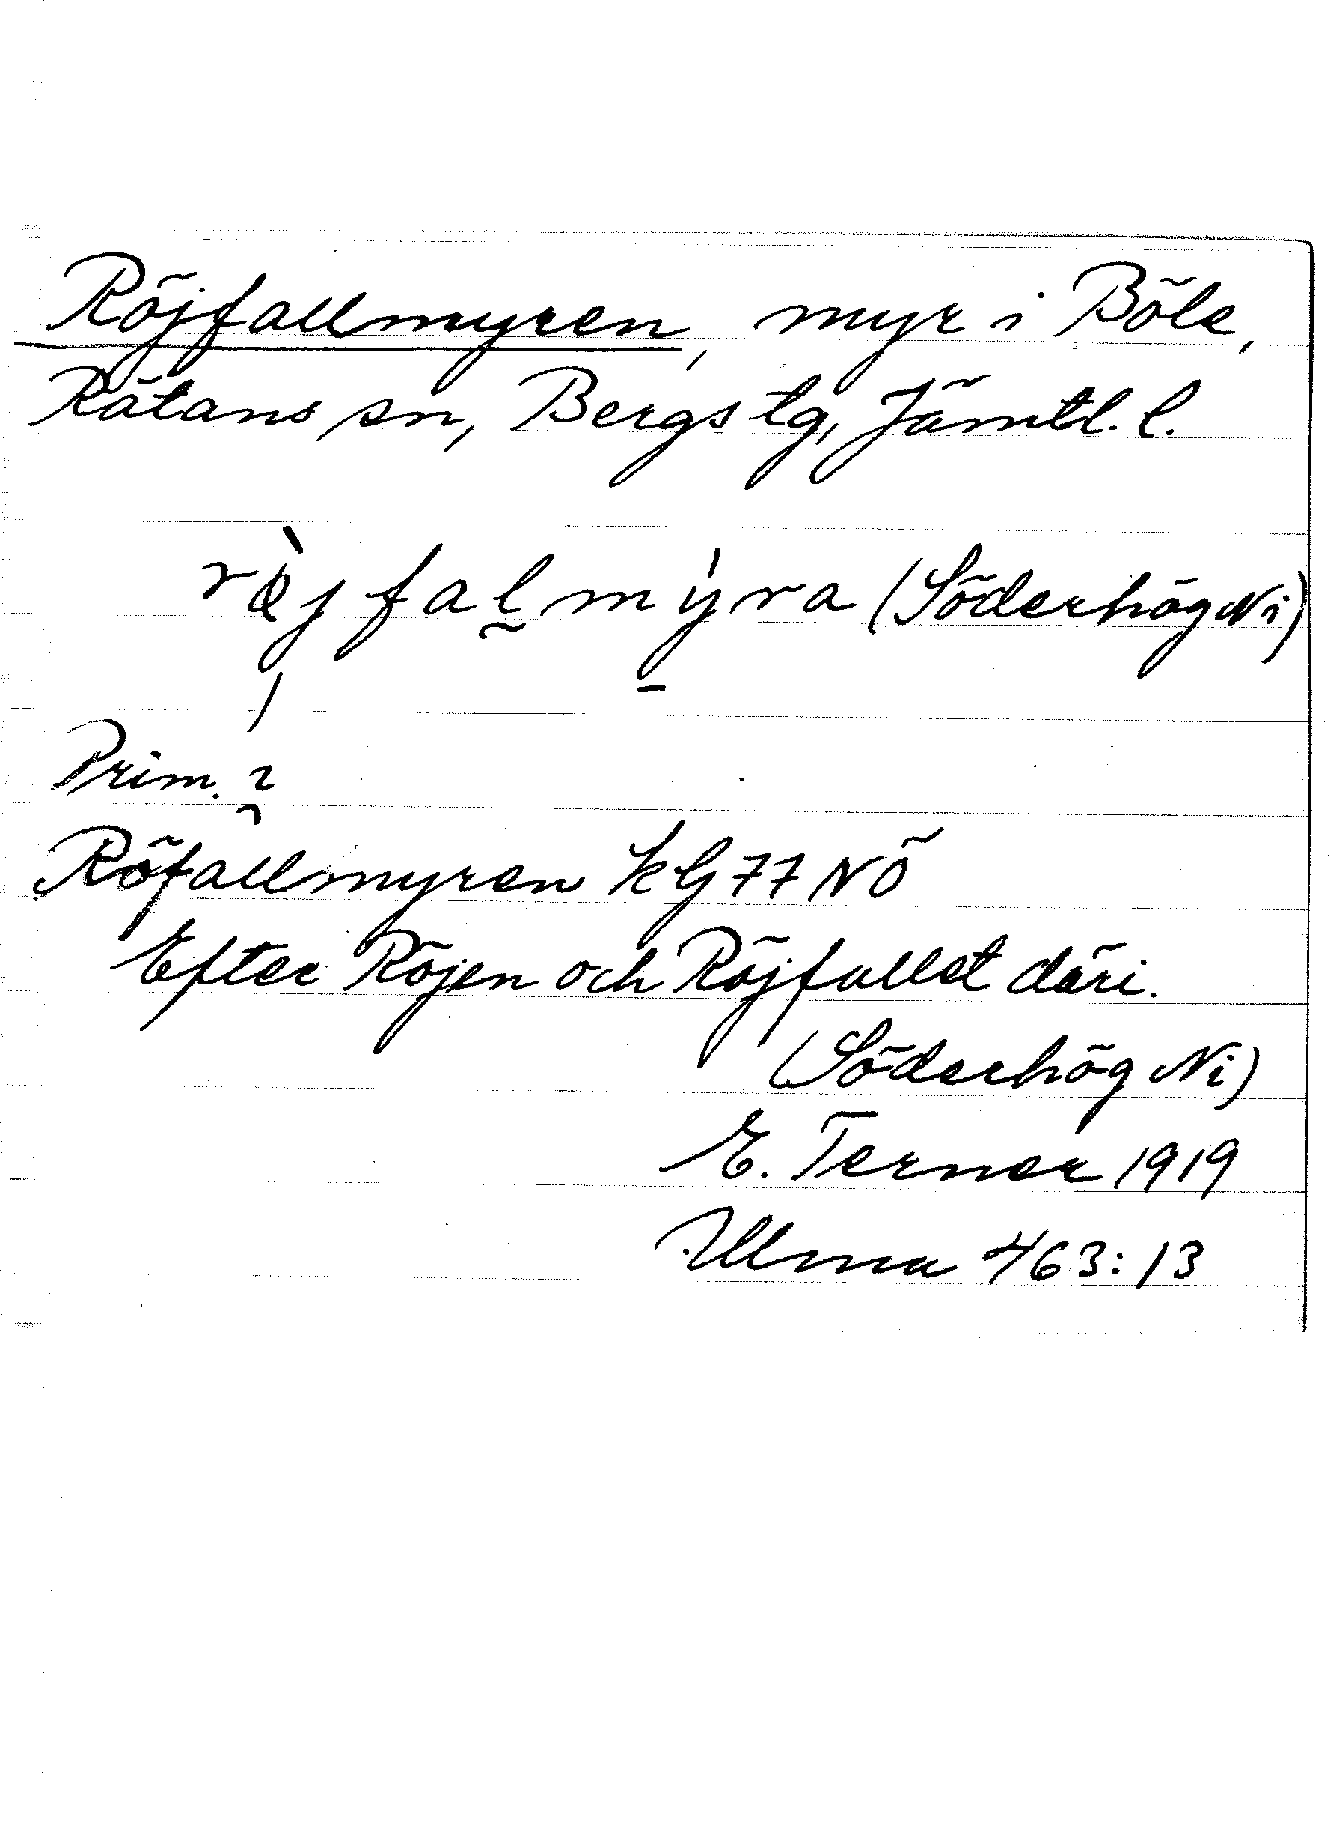 Röjfallmyren, myr i Böle,
Rätans sn, Bergs tg, Jämtl. l.
rœ̀jfalmýra (Söderhög Ni)
Prim.
Röfallmyren kG 77 NÖ
Efter Röjen och Röjfallet däri.
(Söderhög Ni)
E. Terner 1919
Ulma 463:13